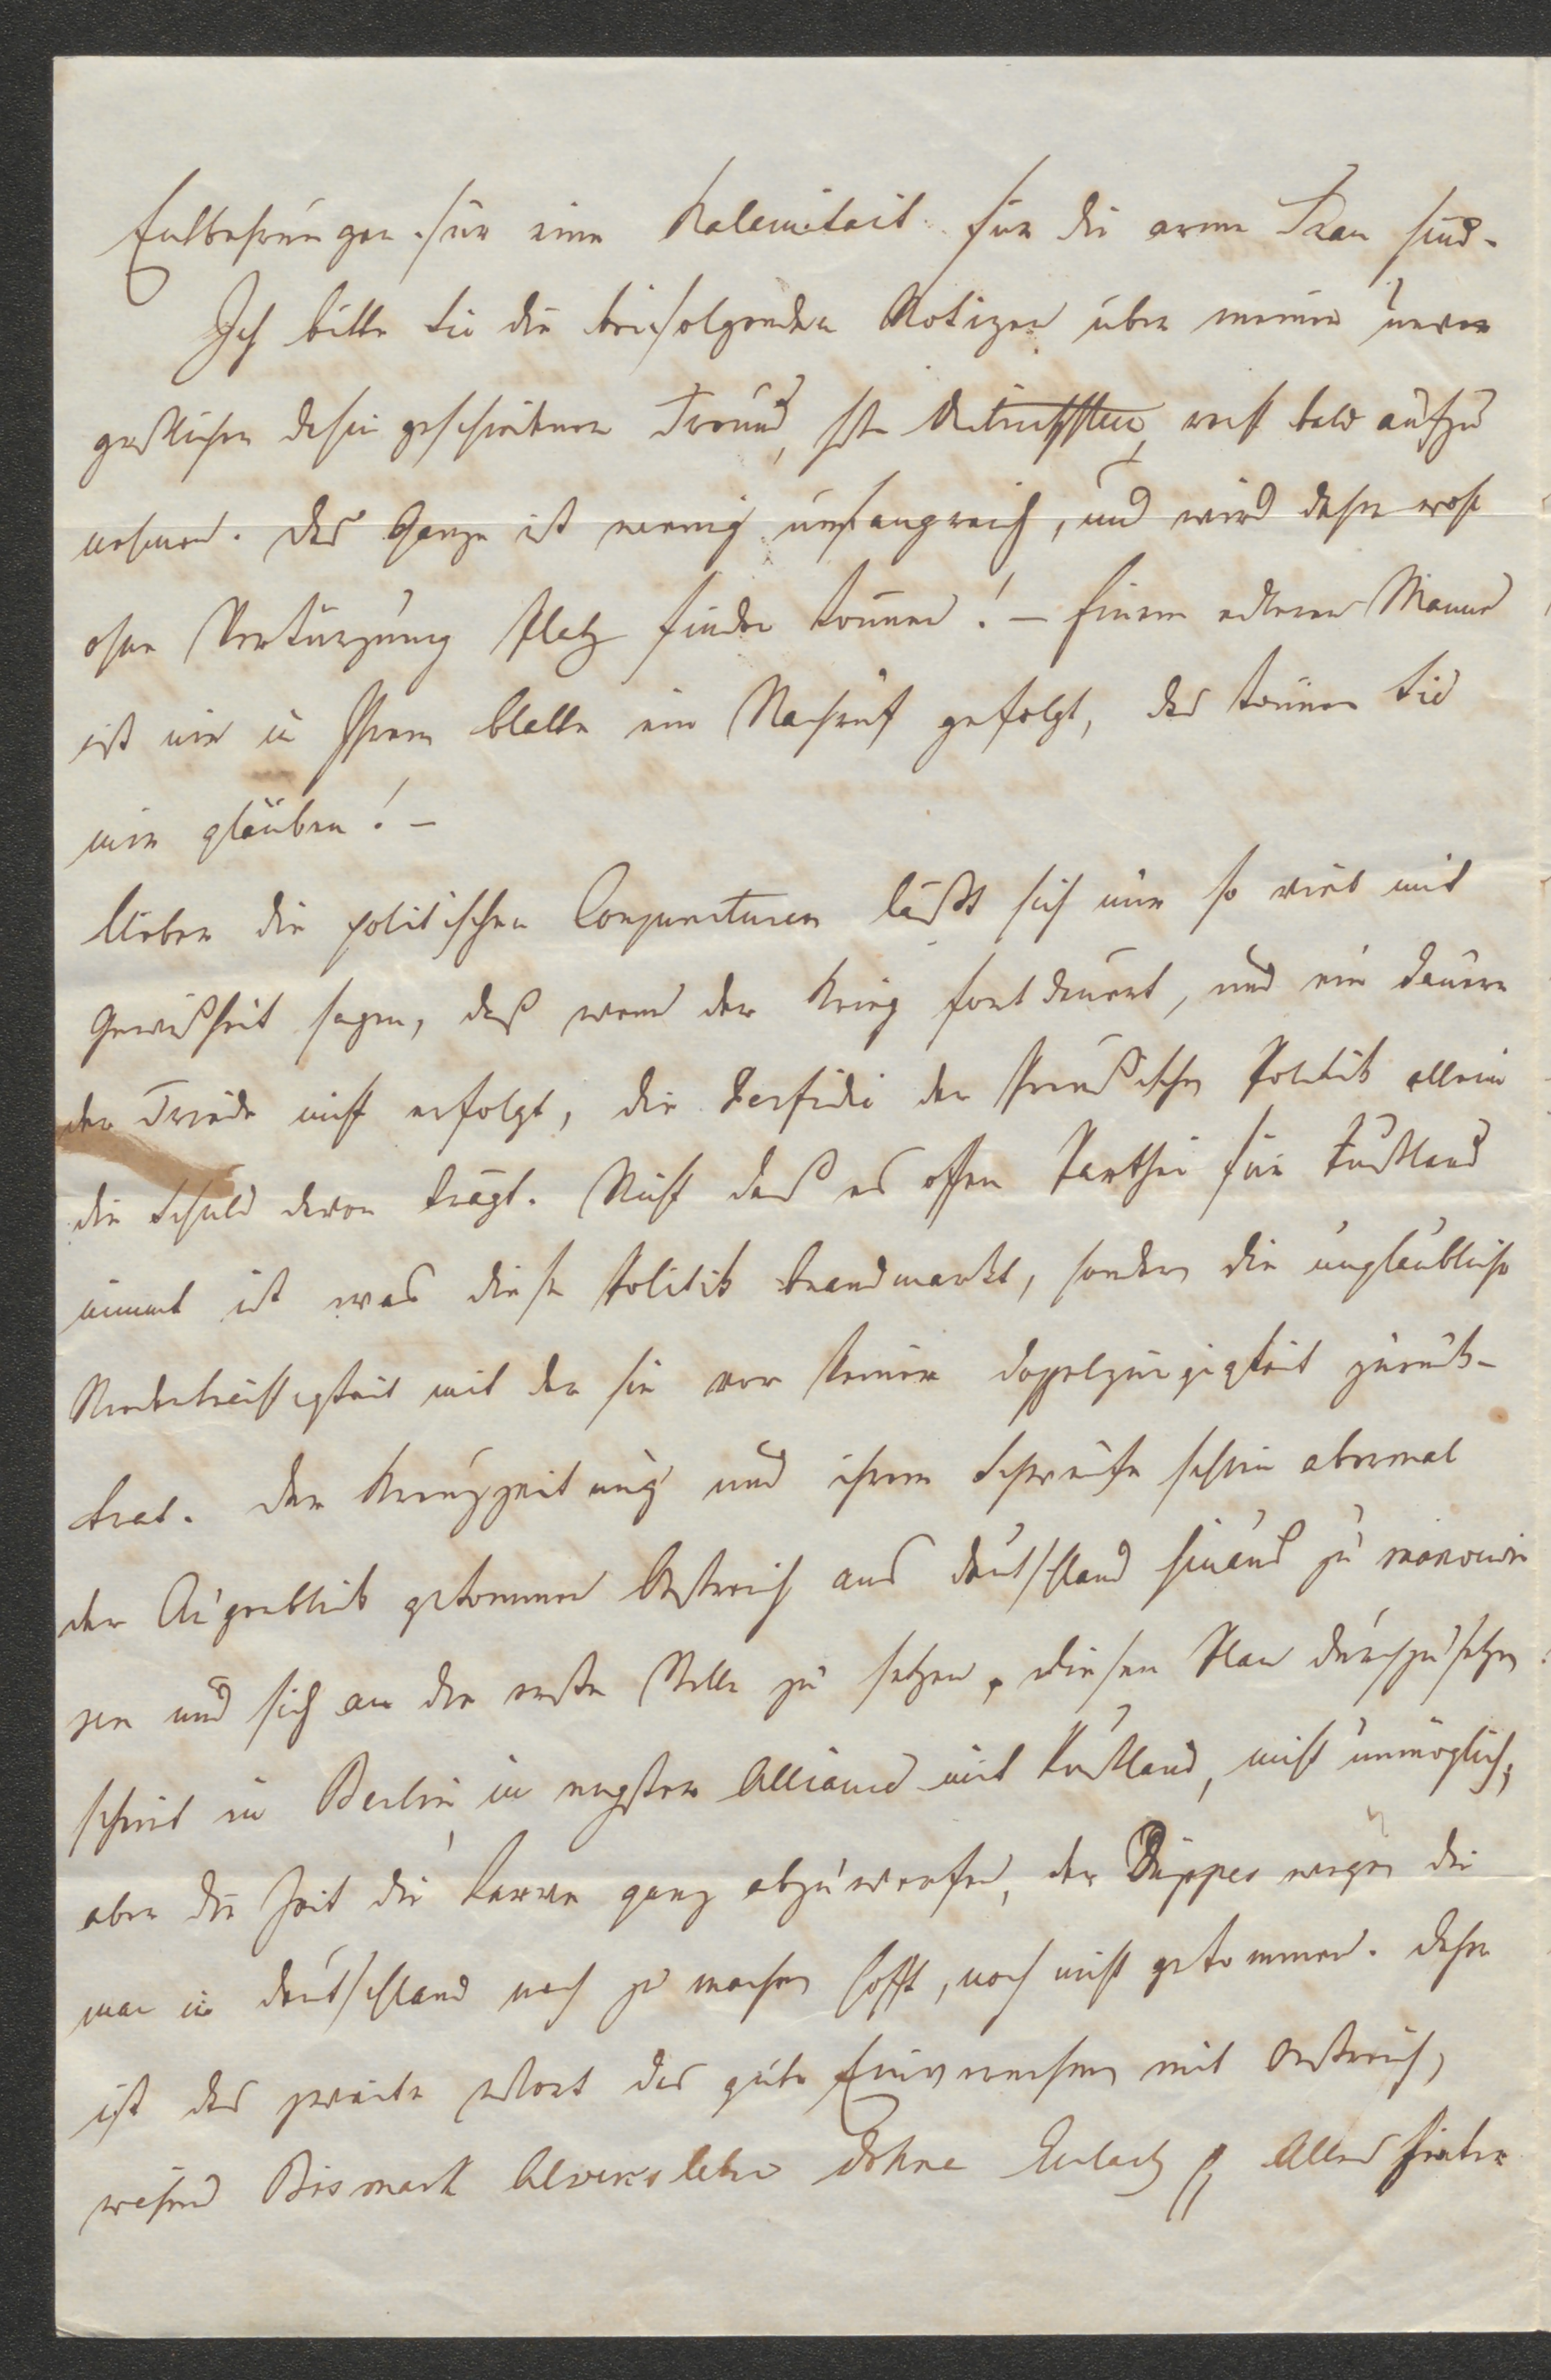 Entbehrungen für eine Kalamitait für die arme Frau sind.
Ich bitte Sie die beifolgenden Notizen über meinen unver
geßlichen dahin geschiedenen Freund, recht bald aufzu
nehmen. Das Ganze ist wenig umfangreich, und wird daher wohl
ohne Verkürzung Platz finden können! – Einem edleren Manne
ist nie in Ihrem Blatte ein Nachruf gefolgt, das können Sie
mir glauben! –
Ueber die politischen Conjuncturen läßt sich nur so viel mit
Gewißheit sagen, daß wenn der Krieg fortdauert, und ein dauern
der Friede nicht erfolgt, die Perfidie der Preußischen Politik allein
die Schuld davon trägt. Nicht daß es offen Parthei für Rußland
nimmt ist was diese Politik brandmarkt, sondern die unglaubliche
Niederträchtigkeit mit der sie vor keiner Doppelzüngigkeit zurück-
trat. Der Kreuzzeitung und ihrem Schweife schien abermal
der Augenblick gekommen Oestreich aus Deutschland hinaus zu manövri
ren und sich an die erste Stelle zu setzen, diesen Plan durchzusetzen
scheint in Berlin, in engster Alliance mit Rußland, nicht unmöglich,
aber die Zeit die Larve ganz abzuwerfen, der Düppes wegen die
man in Deutschland noch zu machen hofft, noch nicht gekommen. Daher
ist das zweite Wort das gute Einvernehmen mit Oestreich,
während Bismark Alvensleben Dohna Gerlach Alles hinter